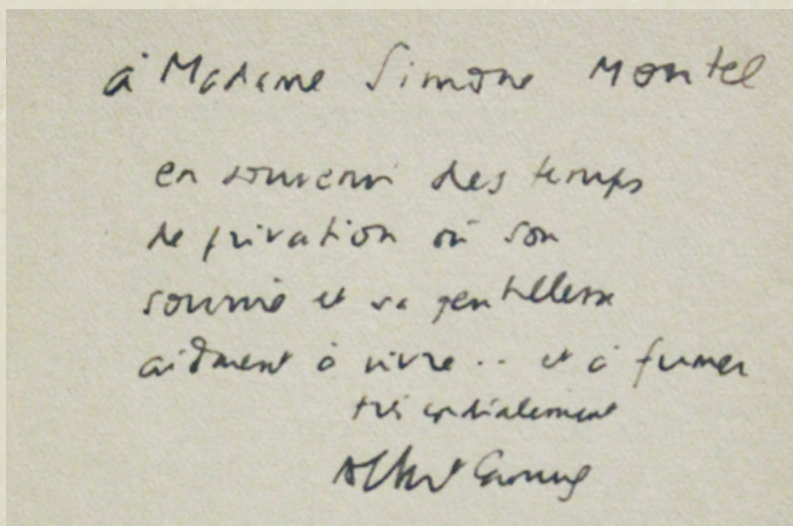 à Madame Simone Montel
en souvenir des temps
de privation où son
sourire et sa gentillesse
aidaient à vivre.. et à fumer
très cordialement
Albert Camus